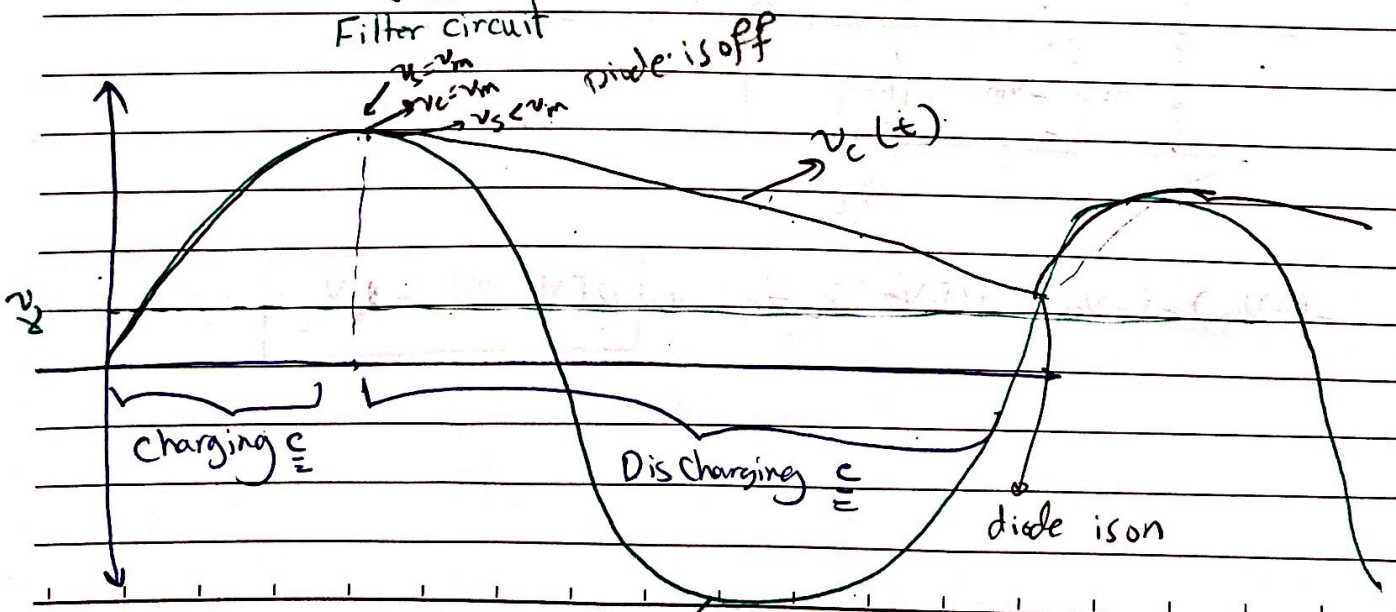 Filter circuit
vs=vm
vc=vm
vs<vm
Diode is off
vc(t)
Charging c
DisCharging c
diode is on